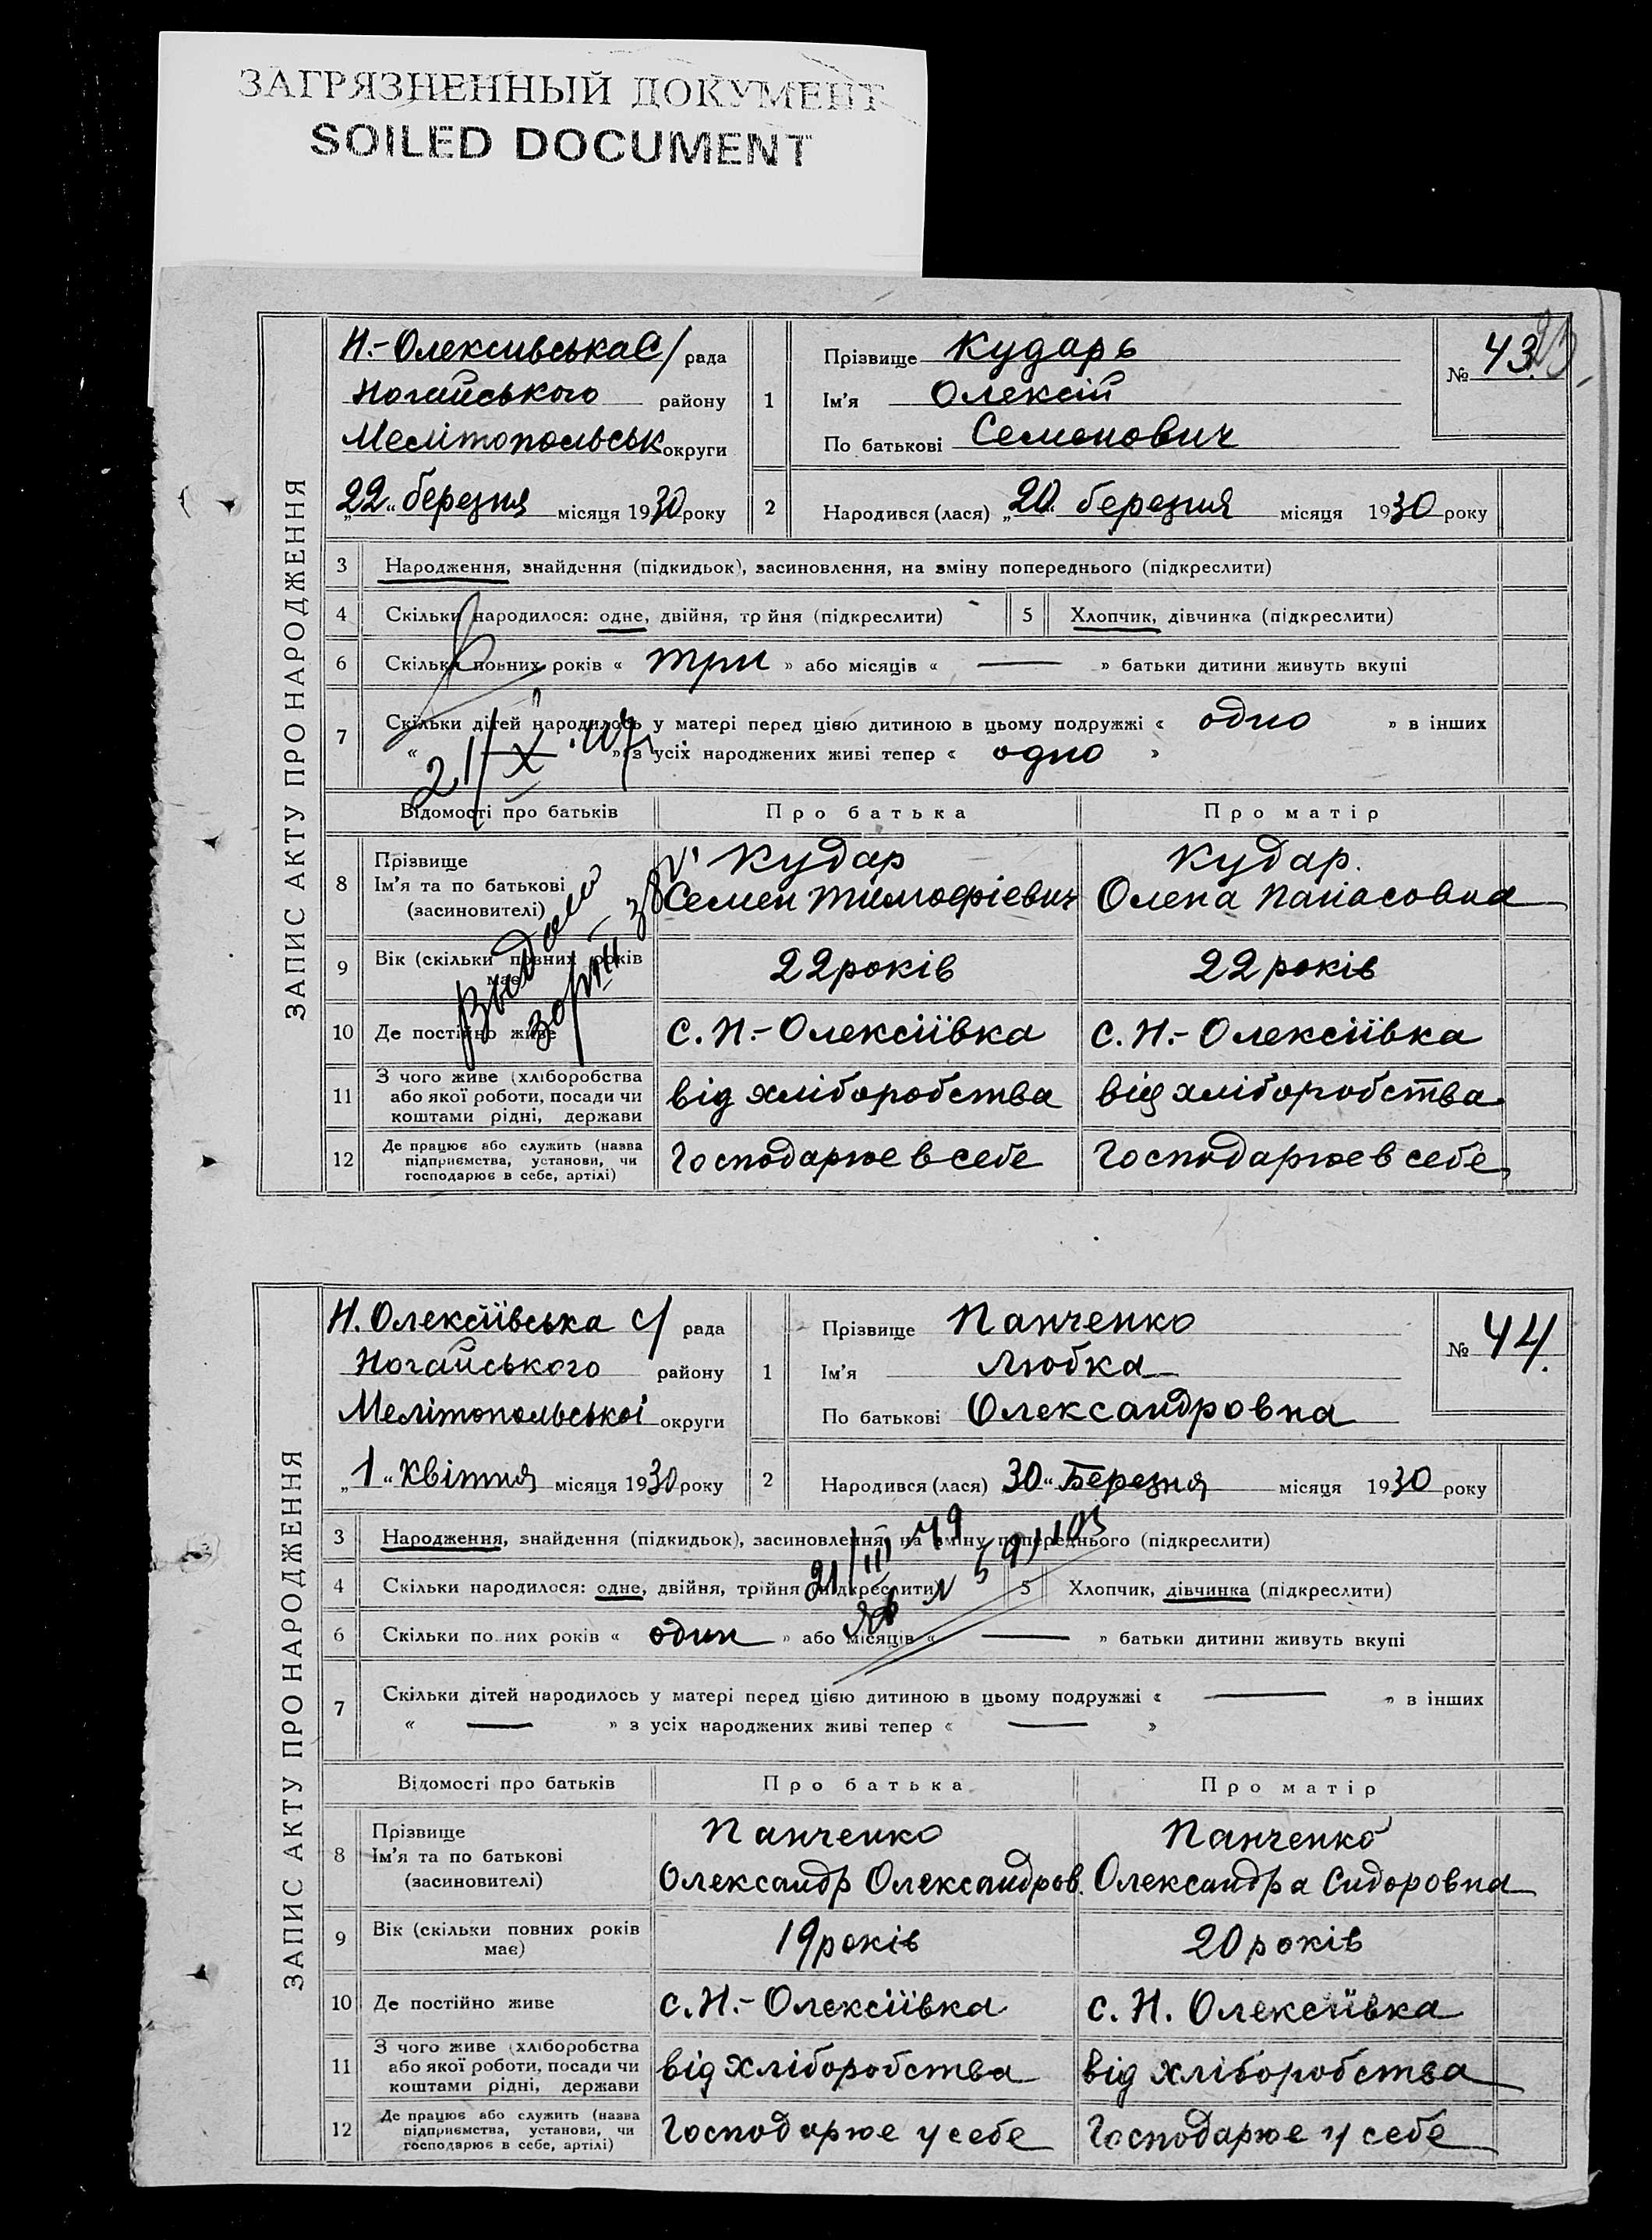 ЗАГРЯЗНЕННЫЙ ДОКУМЕНТ
SOILED DOCUMENT
ЗАПИС АКТУ ПРО НАРОДЖЕННЯ
Н.-Олексивська С/ рада
Ногайського району
Мелітопольськ округи
„22“ березня місяця 1930 року
1
Прізвище Кударь
Ім'я Олексій
По батькові Семенович
№ 43
2
Народився (лася) „20“ березня місяця 1930 року
3 Народження, знайдення (підкидьок), засиновлення, на зміну попереднього (підкреслити)
4 Скільки народилося: одне, двійня, трійня (підкреслити) 5 Хлопчик, дівчинка (підкреслити)
6 Скільки повних років « три » або місяців « — » батьки дитини живуть вкупі
7 Скільки дітей народилось у матері перед цією дитиною в цьому подружжі « одно » в інших
« » з усіх народжених живі тепер « одно »
21/X
Відомості про батьків Про батька Про матір
8 Прізвище
Ім'я та по батькові
(засиновителі)
Кудар
Семен Тимофієвич
Кудар.
Олена Панасовна
9 Вік (скільки повних років
має)
22 років 22 років
10 Де постійно живе с. Н.-Олексіївка с. Н.-Олексіївка
11 З чого живе (хліборобства
або якої роботи, посади чи
коштами рідні, держави
від хліборобства від хліборобства
12 Де працює або служить (назва
підприємства, установи, чи
господарює в себе, артілі)
Господарює в себе Господарює в себе
ЗАПИС АКТУ ПРО НАРОДЖЕННЯ
Н. Олексіївська с/ рада
Ногайського району
Мелітопольської округи
„1“ Квітня місяця 1930 року
1
Прізвище Панченко
Ім'я Любка
По батькові Олександровна
№ 44.
2
Народився (лася) 30“ Березня місяця 1930 року
3 Народження, знайдення (підкидьок), засиновлення, на зміну попереднього (підкреслити)
21/III 49
4 Скільки народилося: одне, двійня, трійня (підкреслити) 5 Хлопчик, дівчинка (підкреслити)
6 Скільки повних років « один » або місяців « — » батьки дитини живуть вкупі
7 Скільки дітей народилось у матері перед цією дитиною в цьому подружжі « — » в інших
« — » з усіх народжених живі тепер « — »
Відомості про батьків Про батька Про матір
8 Прізвище
Ім'я та по батькові
(засиновителі)
Панченко
Олександр Олександров.
Панченко
Олександра Сидоровна
9 Вік (скільки повних років
має)
19 років 20 років
10 Де постійно живе с. Н.-Олексіївка с. Н. Олексіївка
11 З чого живе (хліборобства
або якої роботи, посади чи
коштами рідні, держави
від хліборобства від хліборобства
12 Де працює або служить (назва
підприємства, установи, чи
господарює в себе, артілі)
Господарює у себе Господарює у себе